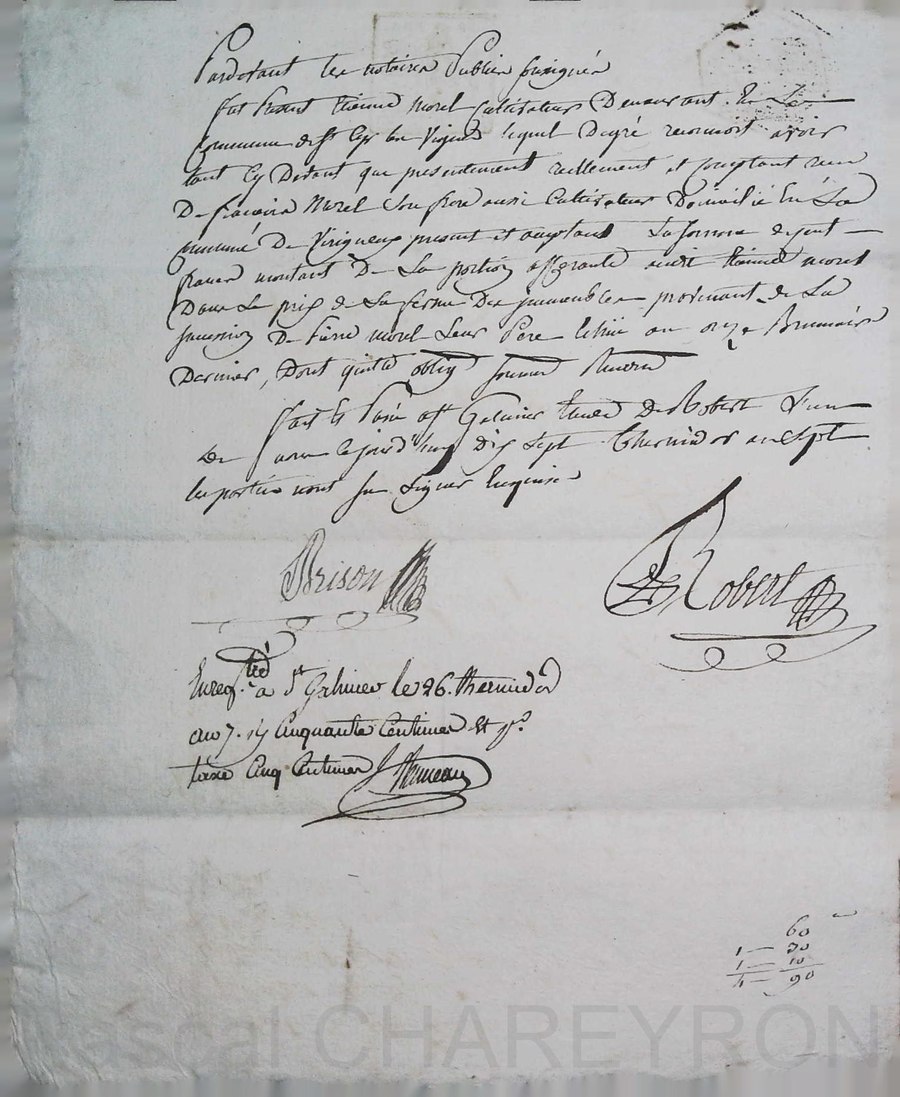 Pardevant les notaires Publics soussignés
fut Present Etienne Morel Cultivateur Demeurant En La
Commune de St Cyr les Vignes lequel De gré reconnoit avoir
tant Cy Devant que presentement reellement et Comptant reçu
De françois Morel Son frere aussi Cultivateur Domicilié En La
Commune De Virigneux present et acceptant La somme
francs montant De La portion afferante audit Etienne morel
Dans Le prix de La ferme Des immeubles provenant De La
succession De Pierre Morel Leur Pere Echüe au onze Brumaire
Dernier, Dont quitte oblig
fait et Passé a St Galmier Etude De Robert L'un
De Nous le jourd'huy Dix Sept thermidor an Sept
les parties n'ont Su Signer Enquises
Brison
DeRobert
Enregtré a St Galmier le 26. thermidor
an 7. Cinquante Centimes et pr.
taxe Cinq Centimes
60
1 — 20
1 — 10
4 — 90
Pascal CHAREYRON